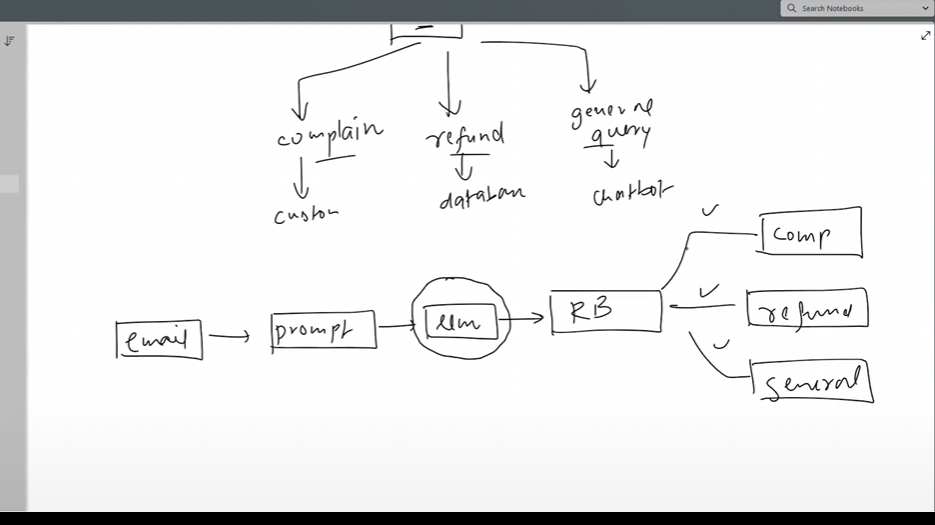 Search Notebooks
complain
refund
general
query
custom
databan
chatbot
comp
email
prompt
llm
RB
refund
general